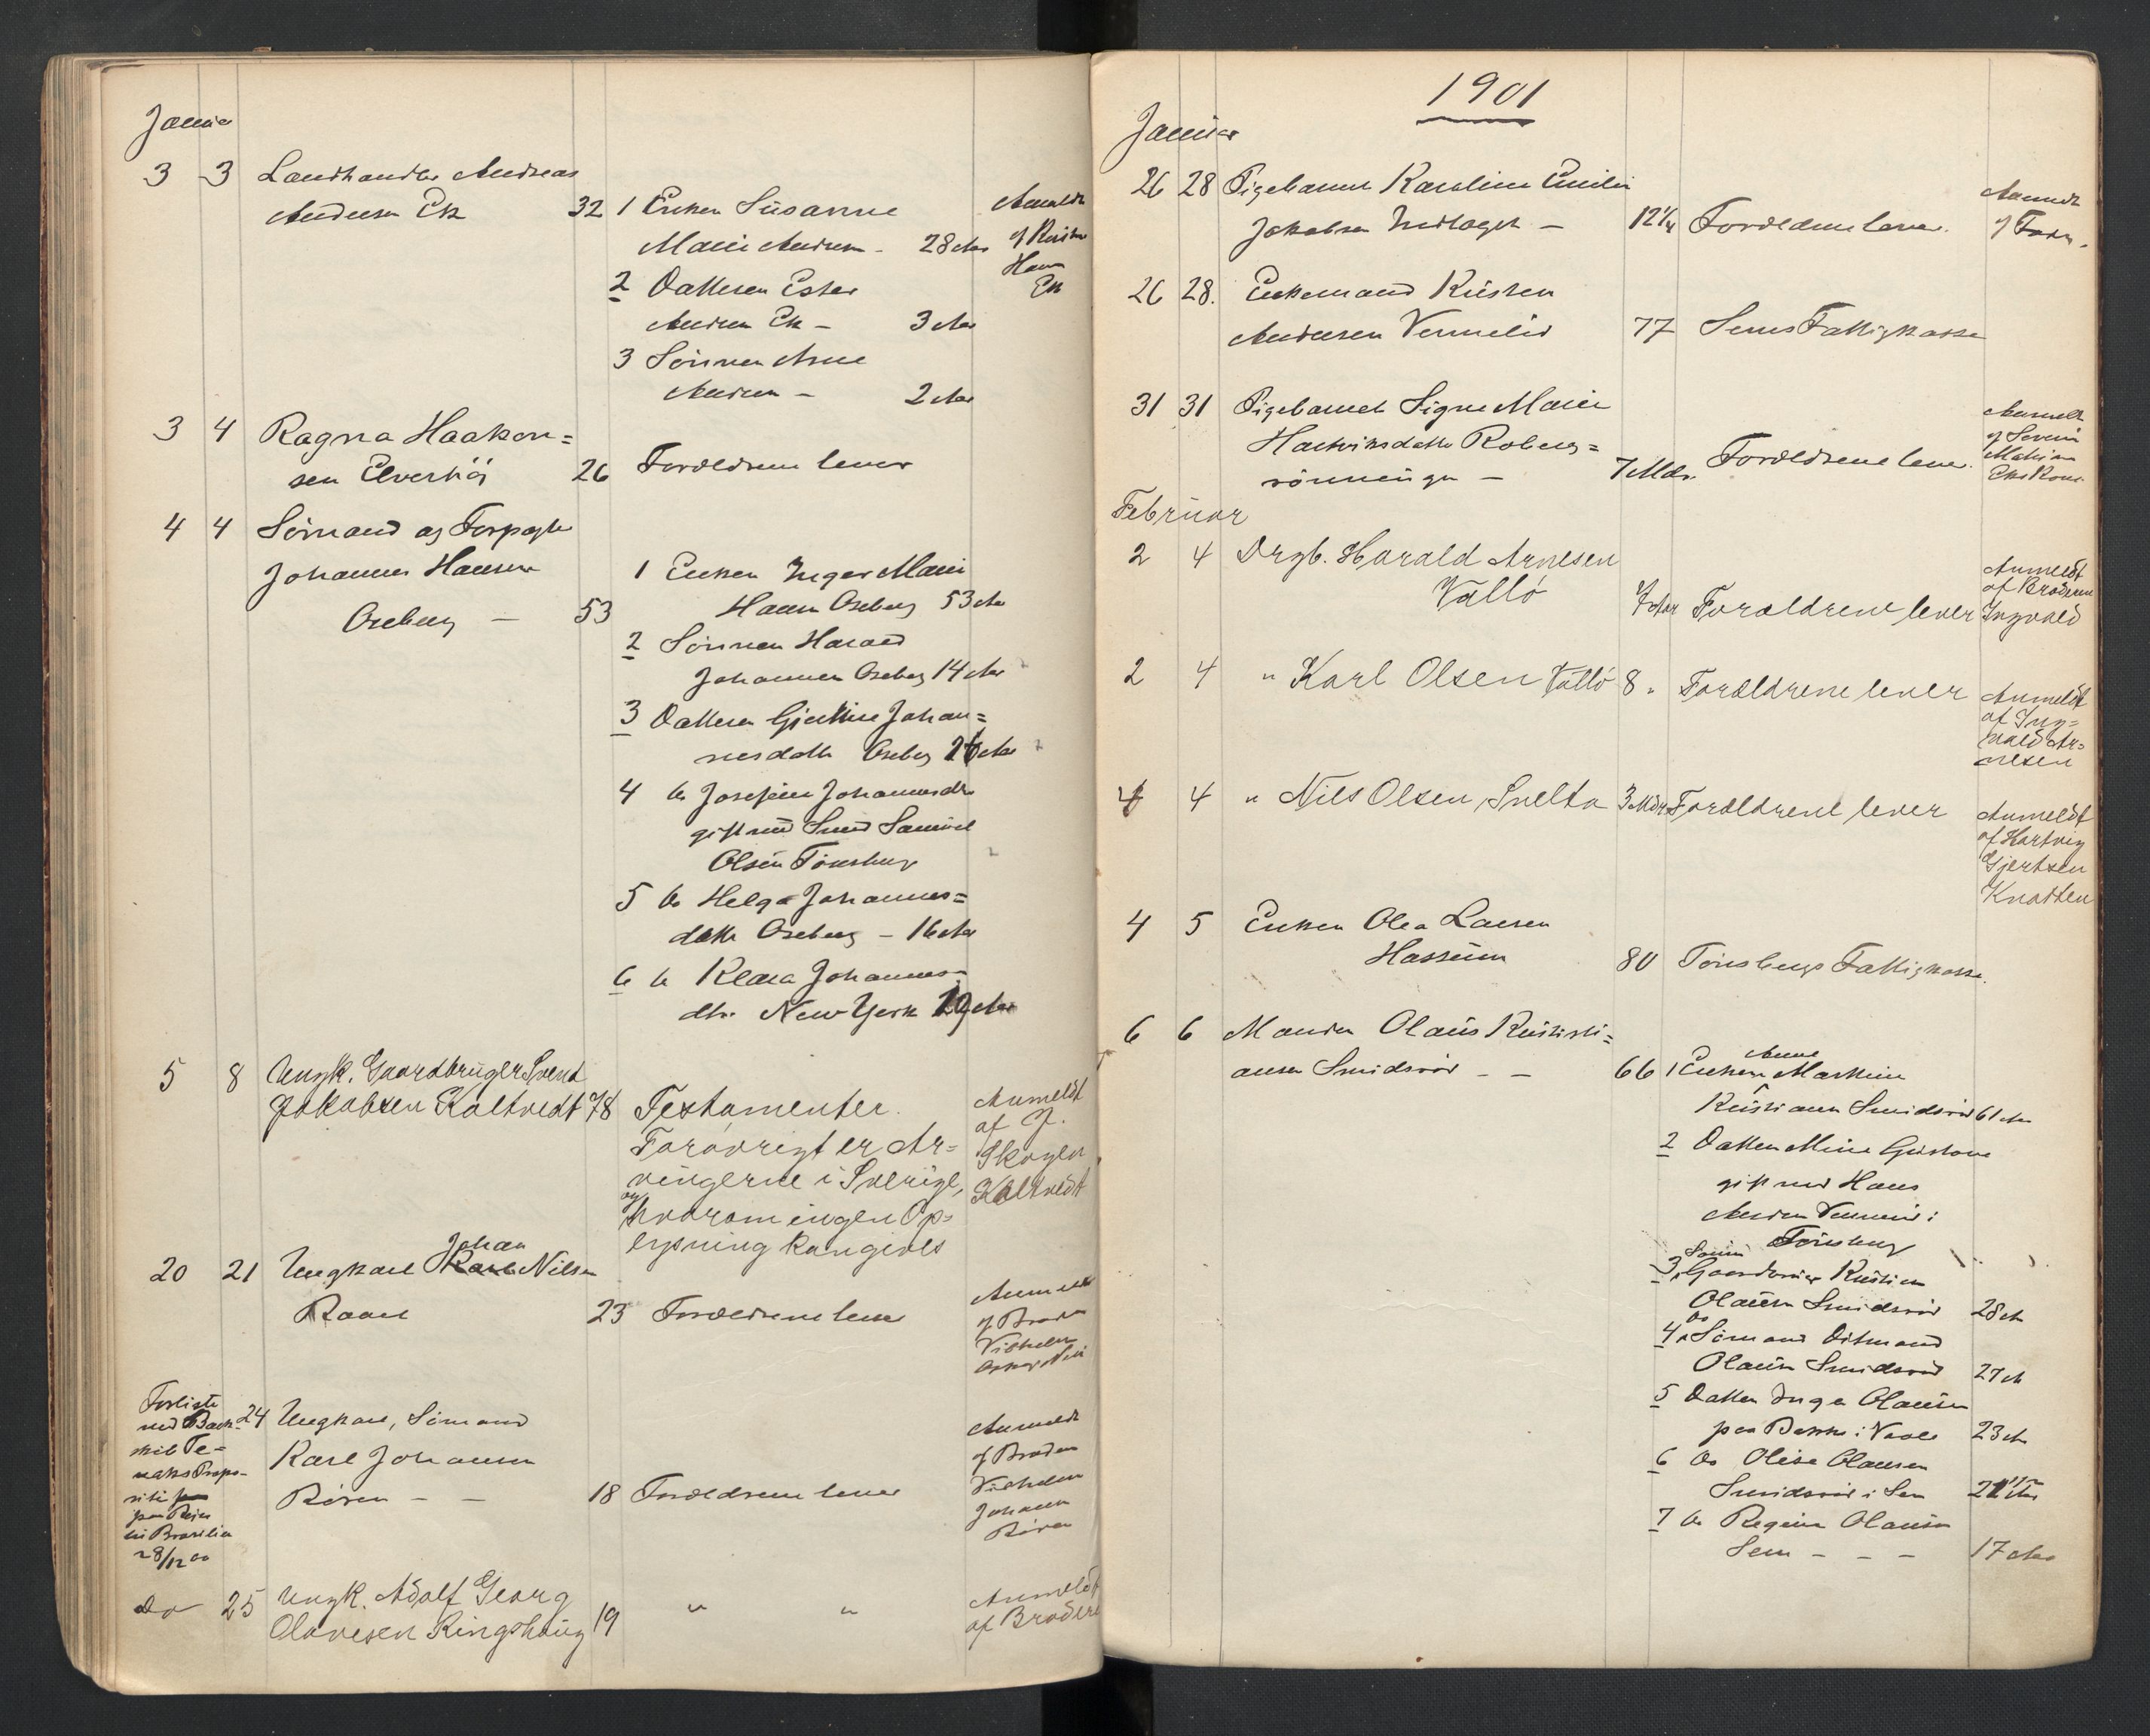 Januar
3 3 Landhandler Andreas
Andersen Ek 32 1 Enken Susanne Anmeldt
Marie Andersen - 28 Aar af
2 Datteren Ester Ek
Andersen Ek - 3 Aar
3 Sönnen Arne
Andersen - 2 Aar
3 4 Ragna Haakon=
sen Elverhöi 26 Forældrene lever
4 4 Sömand og Forpagter
Johannes Hansen 1 Enken Inger Marie
Oseberg - 53 Hansen Oseberg 53 Aar
2 Sönnen Harald
Johannesen Oseberg 14 Aar
3 Datteren Gjertine Johan=
nesdatter Oseberg Aar
4 do Josefine Johannesdtr
gift med Smed Samuel
Olsen Tönsberg
5 do Helga Johannes=
datter Oseberg - 16 Aar
6 do Klara Johannes=
dtr. New York Aar
5 8 Ungk. Gaardbruger Svend
Jakobsen Kaltvedt 78 Testamenter. Anmeldt
Forövrigt er Ar= af J.
vingerne i Sverige, Skogen,
og hvorom ingen Op= Kaltvedt
lysning kan gives
Johan
20 21 Ungkarl Karl Nilsen Anmeldt
Raael 23 Forældrene lever af Broder
Vilhelm
Forliste
med Bark= 24 Ungkarl, Sömand Anmeldt
skib Te= Karl Johansen af Broderen
naks Propo- Vilhelm
siti Rören - - 18 Forældrene lever Johansen
paa Reise Rören
til Brasilien
28/12 00
do 25 Ungk. Adolf Georg Anmeldt
Olavesen Ringshaug 19 " " af Broderen
1901
Januar
26 28 Pigebarnet Karoline Emilie Anmeldt
Jakobsen - 12 1/4 Forældrene lever. af Faren.
26 28. Enkemand Kristen
Andersen Vermelid 77 Sems Fattigkasse
31 31 Pigebarnet Signe Marie Anmeldt
Hartviksdatter Roberg= af Severin
rönningen - 7 Mdr. Forældrene lever. Mathisen
Eks Kone
Februar
2 4 Drgb. Harald Arnesen Anmeldt
Vallö 7 Aar Forældrene lever af Broderen
Ingvald
2 4 " Karl Olsen Vallö 8 " Forældrene lever Anmeldt
af Ing=
vald Ar=
nesen
4 4 " Nils Olsen, Svelta 3 Mdr. Forældrene lever Anmeldt
af Hartvig
Gjertsen
Knatten
4 5 Enken Olea Larsen
Hassum 80 Tönsbergs Fattigkasse.
6 6 Manden Olaus Kristi=
ansen Smidsröd - - 66 1 Enken Anne Mathine
Kristiansen Smidsröd 61 Aar
2 Datteren Mina Gustava
gift med Hans
Andersen i
Tönsberg
3 Sönnen Gaardbruger Kristian
Olausen Smidsröd 28 Aar
4 do Sömand Ditmand
Olausen Smidsröd 27 Aar
5 Datteren Inga Olausen
paa Bakke i Vaale 23 Aar
6 do Olise Olausen
Smidsröd i Sem 21 1/2 Aar
7 do Regine Olausen
Sem - - - 17 Aar